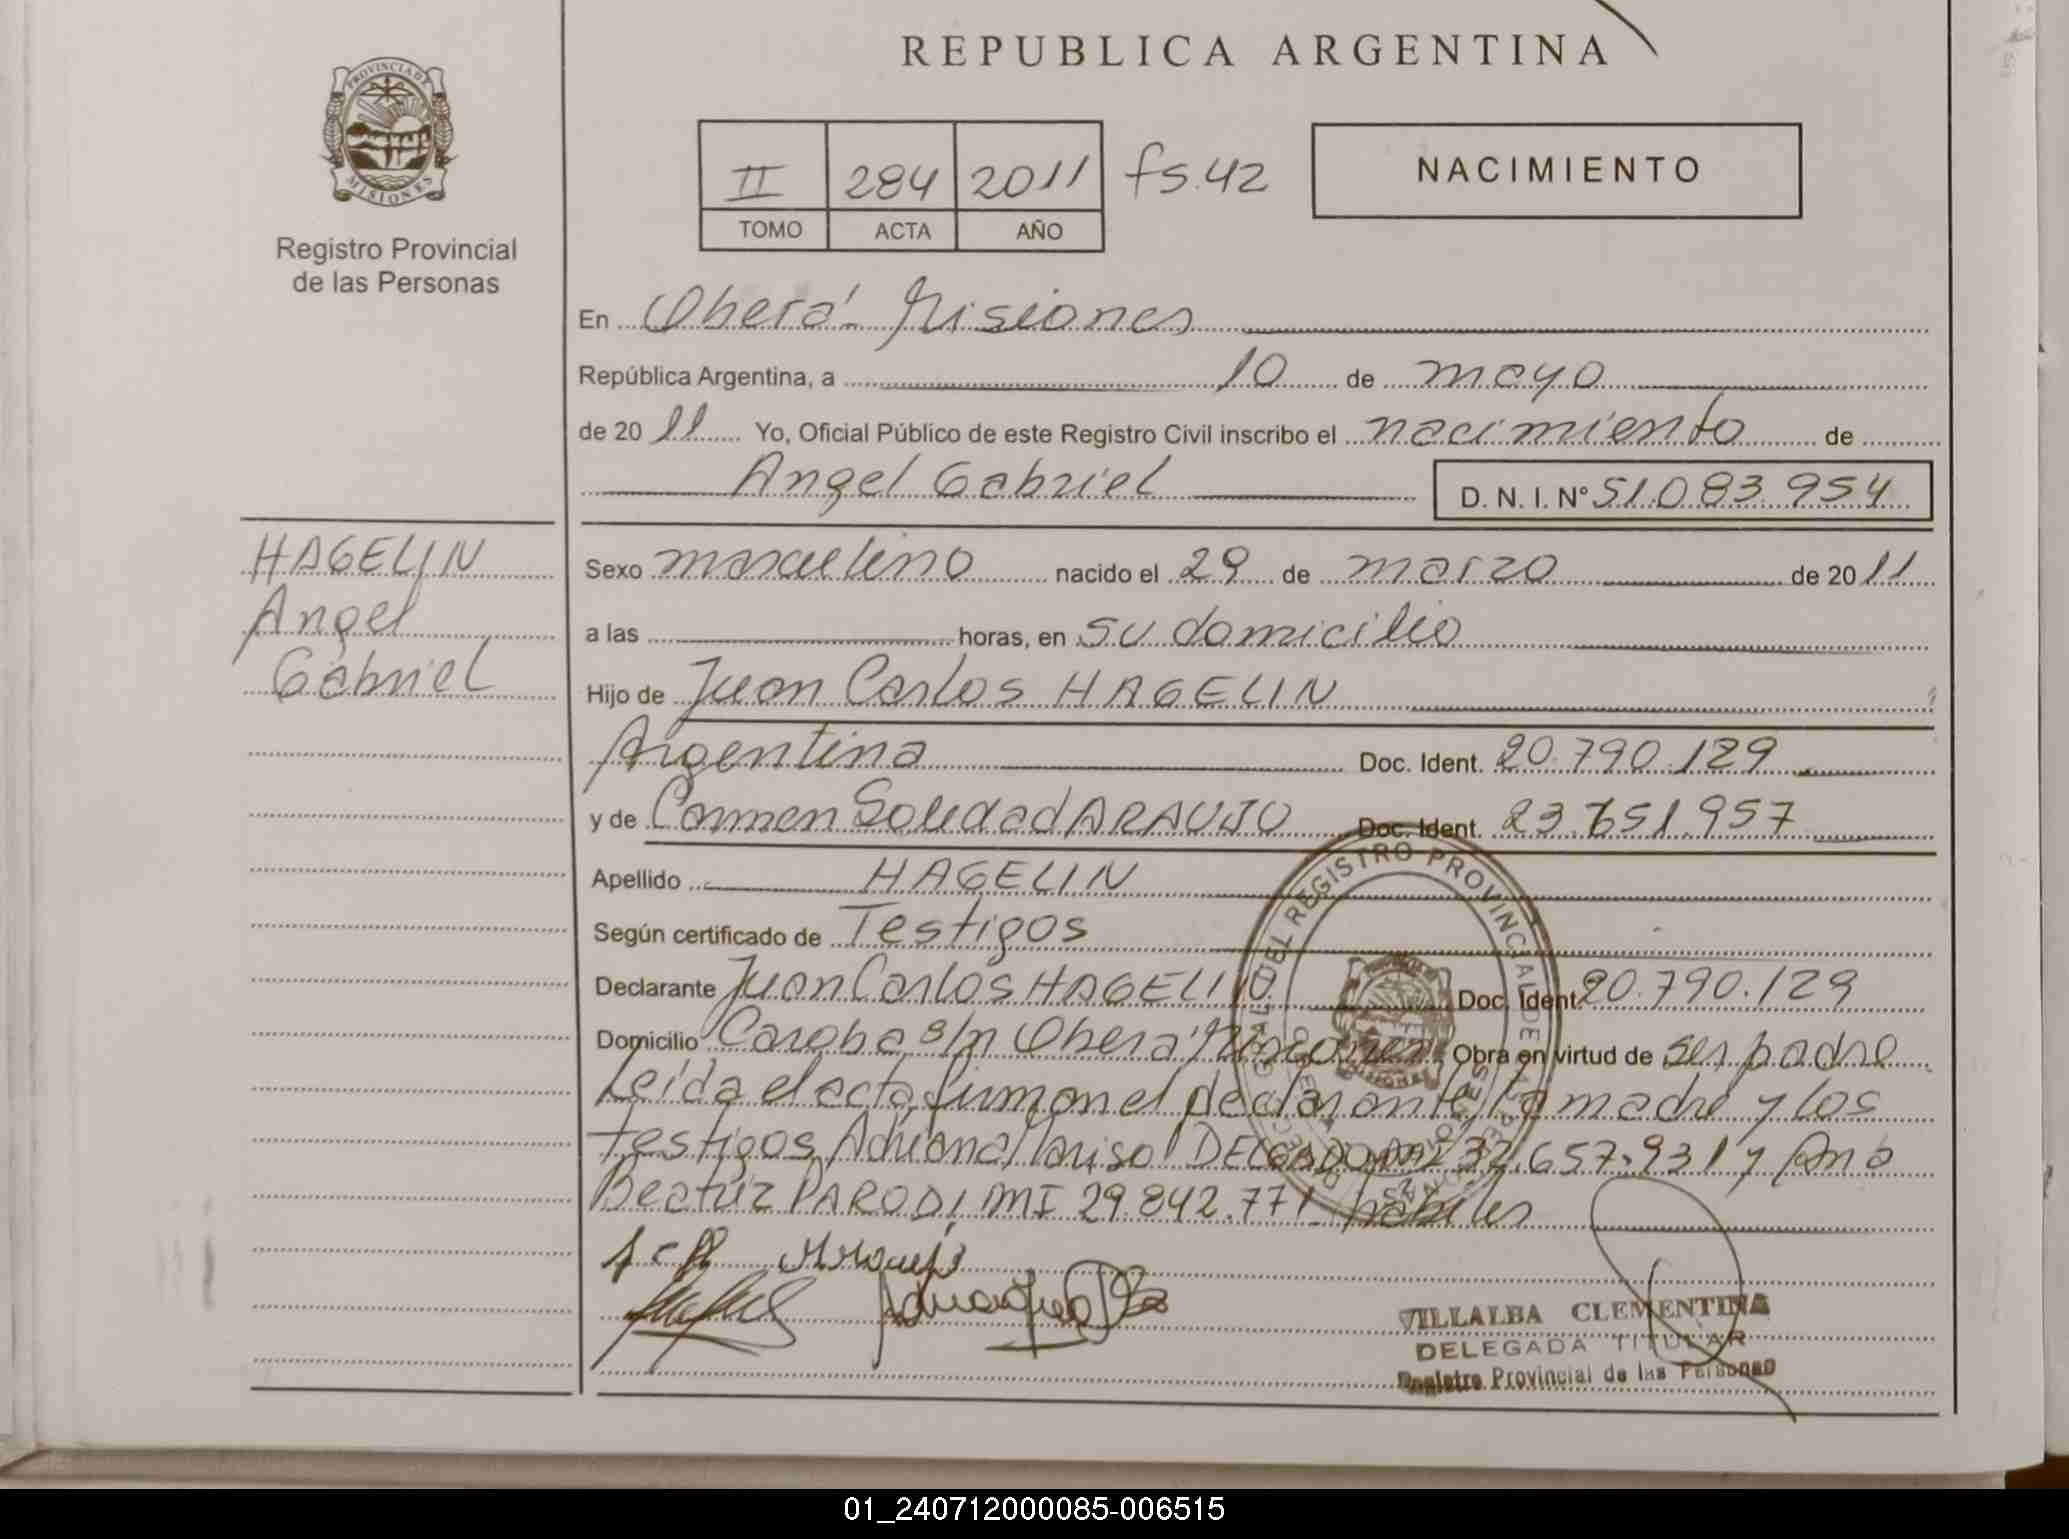 REPUBLICA ARGENTINA
PROVINCIA DE
MISIONES
Registro Provincial
de las Personas
II 284 2011 fs. 42
TOMO ACTA AÑO
NACIMIENTO
En Oberá Misiones
República Argentina, a 10 de mayo
de 2011 Yo, Oficial Público de este Registro Civil inscribo el nacimiento de
Angel Gabriel D. N. I. N° 51.083.954
HAGELIN
Angel
Gabriel
Sexo masculino nacido el 29 de marzo de 2011
a las horas, en su domicilio
Hijo de Juan Carlos HAGELIN
Argentina Doc. Ident. 20.790.129
y de Carmen Soledad ARAUJO Doc. Ident. 23.651.957
Apellido HAGELIN
Según certificado de Testigos
Declarante Juan Carlos HAGELIN Doc. Ident. 20.790.129
Domicilio Caroba s/n Oberá Misiones Obra en virtud de ser padre
Leída el acta, firman el declarante, la madre y los
testigos Adriana Marisol DELGADO MI 32.657.931 y Ana
Beatriz PARODI, MI 29.842.771 hábiles
DEL REGISTRO PROVINCIAL DE LAS PERSONAS
VILLALBA CLEMENTINA
DELEGADA TITULAR
Registro Provincial de las Personas
01_240712000085-006515